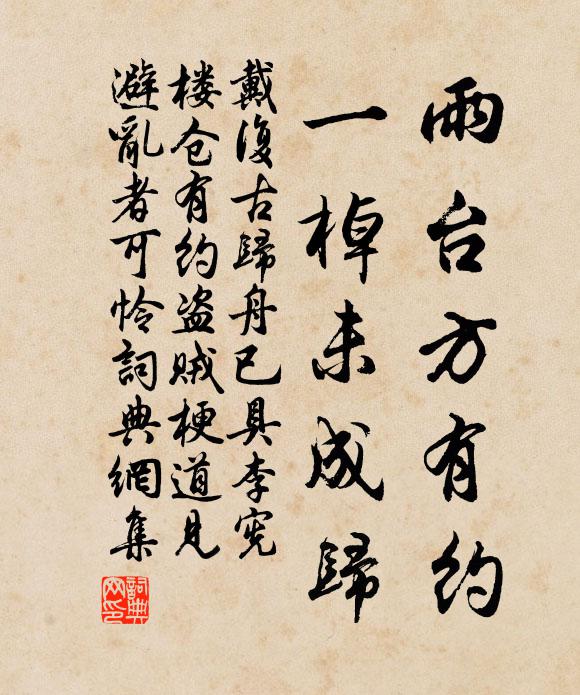 兩台方有约
一棹未成歸
戴復古歸舟已具李宪
楼仓有约盗贼梗道见
避亂者可怜詞典網集
詞典
网印